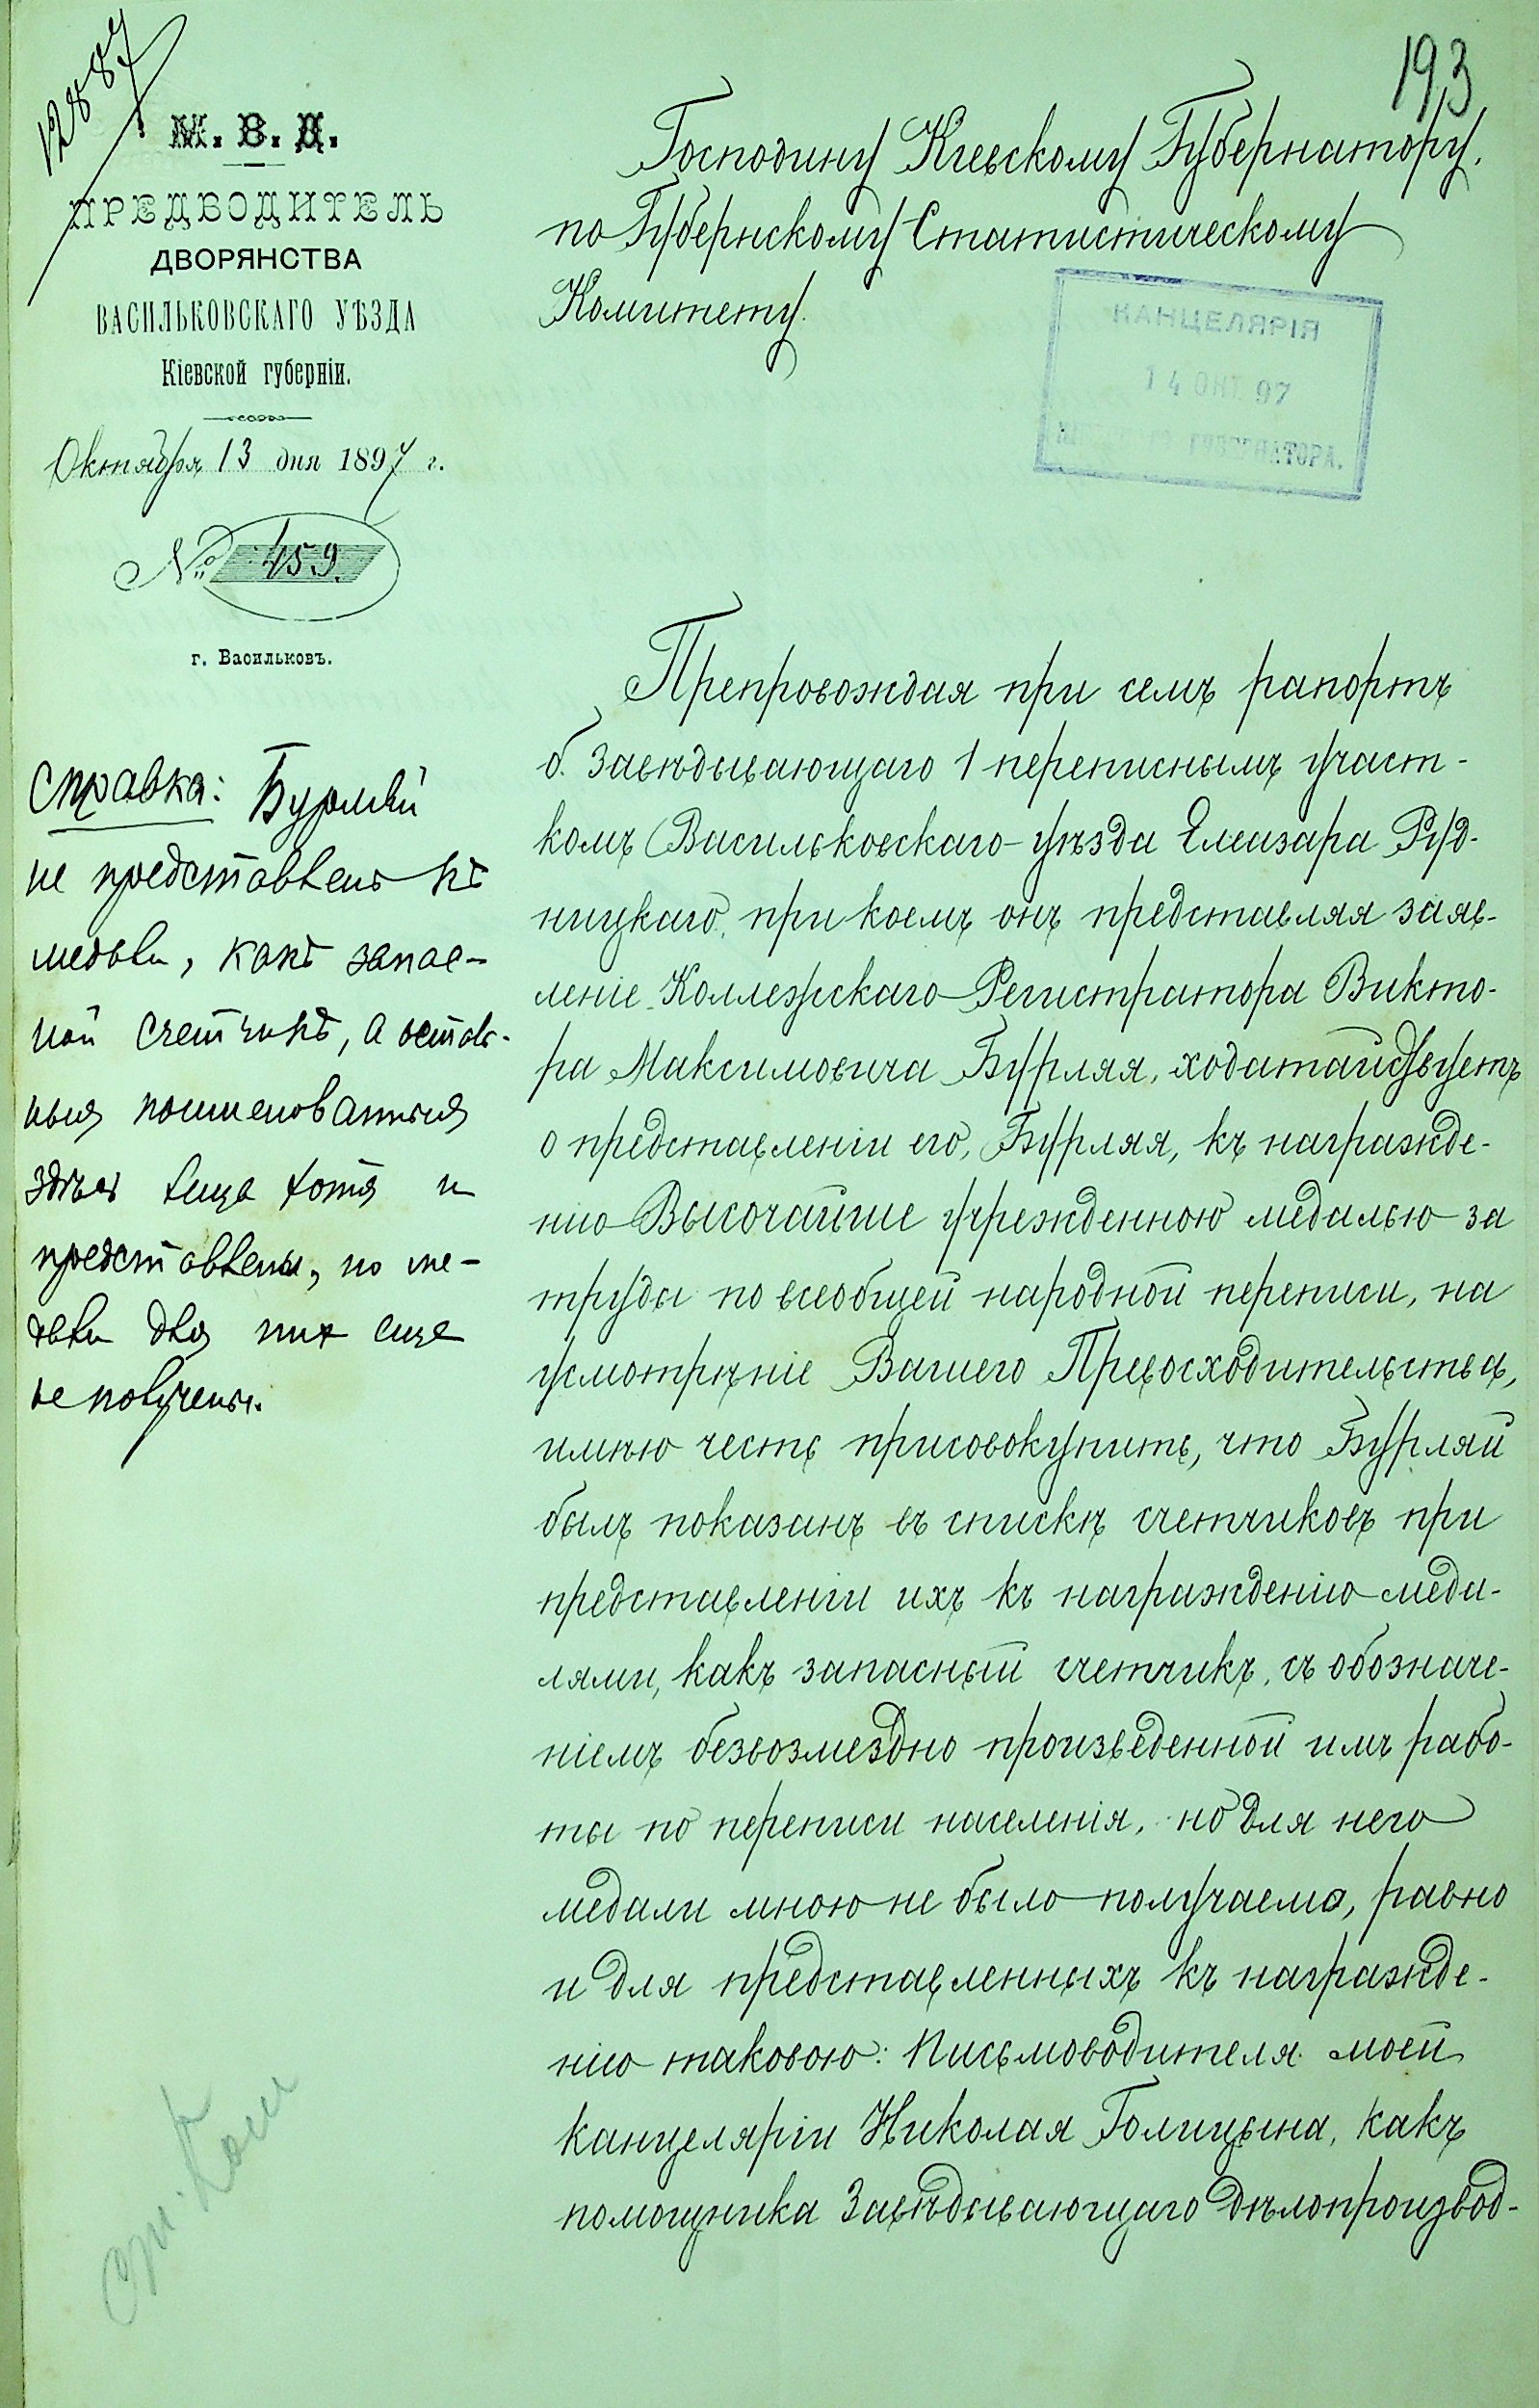 12887
193
М. В. Д.
ПРЕДВОДИТЕЛЬ
ДВОРЯНСТВА
ВАСИЛЬКОВСКАГО УѢЗДА
Кіевской губерніи.
Октября 13 дня 1897 г.
№ 459.
г. Васильковъ.
Господину Кіевскому Губернатору.
по Губернскому Статистическому
Комитету.
КАНЦЕЛЯРІЯ
14 ОКТ. 97
ГУБЕРНАТОРА.
Справка: Бурляй
не представленъ къ
медали, какъ запас-
ной счетчикъ, а осталь-
ныя поименованныя
здѣсь лица хотя и
представлены, но ме-
дали для них еще
не получены.
Препровождая при семъ рапортъ
б. Завѣдывающаго 1 переписнымъ участ-
комъ Васильковскаго уѣзда Елеазара Руд-
ницкаго, при коемъ онъ представляя заяв-
леніе Коллежскаго Регистратора Викто-
ра Максимовича Бурляя, ходатайствуетъ
о представленіи его, Бурляя, къ награжде-
нію Высочайше учрежденною медалью за
труды по всеобщей народной переписи, на
усмотрѣніе Вашего Превосходительства,
имѣю честь присовокупить, что Бурляй
былъ показанъ въ спискѣ счетчиковъ при
представленіи ихъ къ награжденію меда-
лями, какъ запасный счетчикъ, съ обозначе-
ніемъ безвозмездно произведенной имъ рабо-
ты по переписи населенія, но для него
медали мною не было получаемо, равно
и для представленныхъ къ награжде-
нію таковою: Письмоводителя моей
канцеляріи Николая Голицына, какъ
помощника Завѣдывающаго дѣлопроизвод-